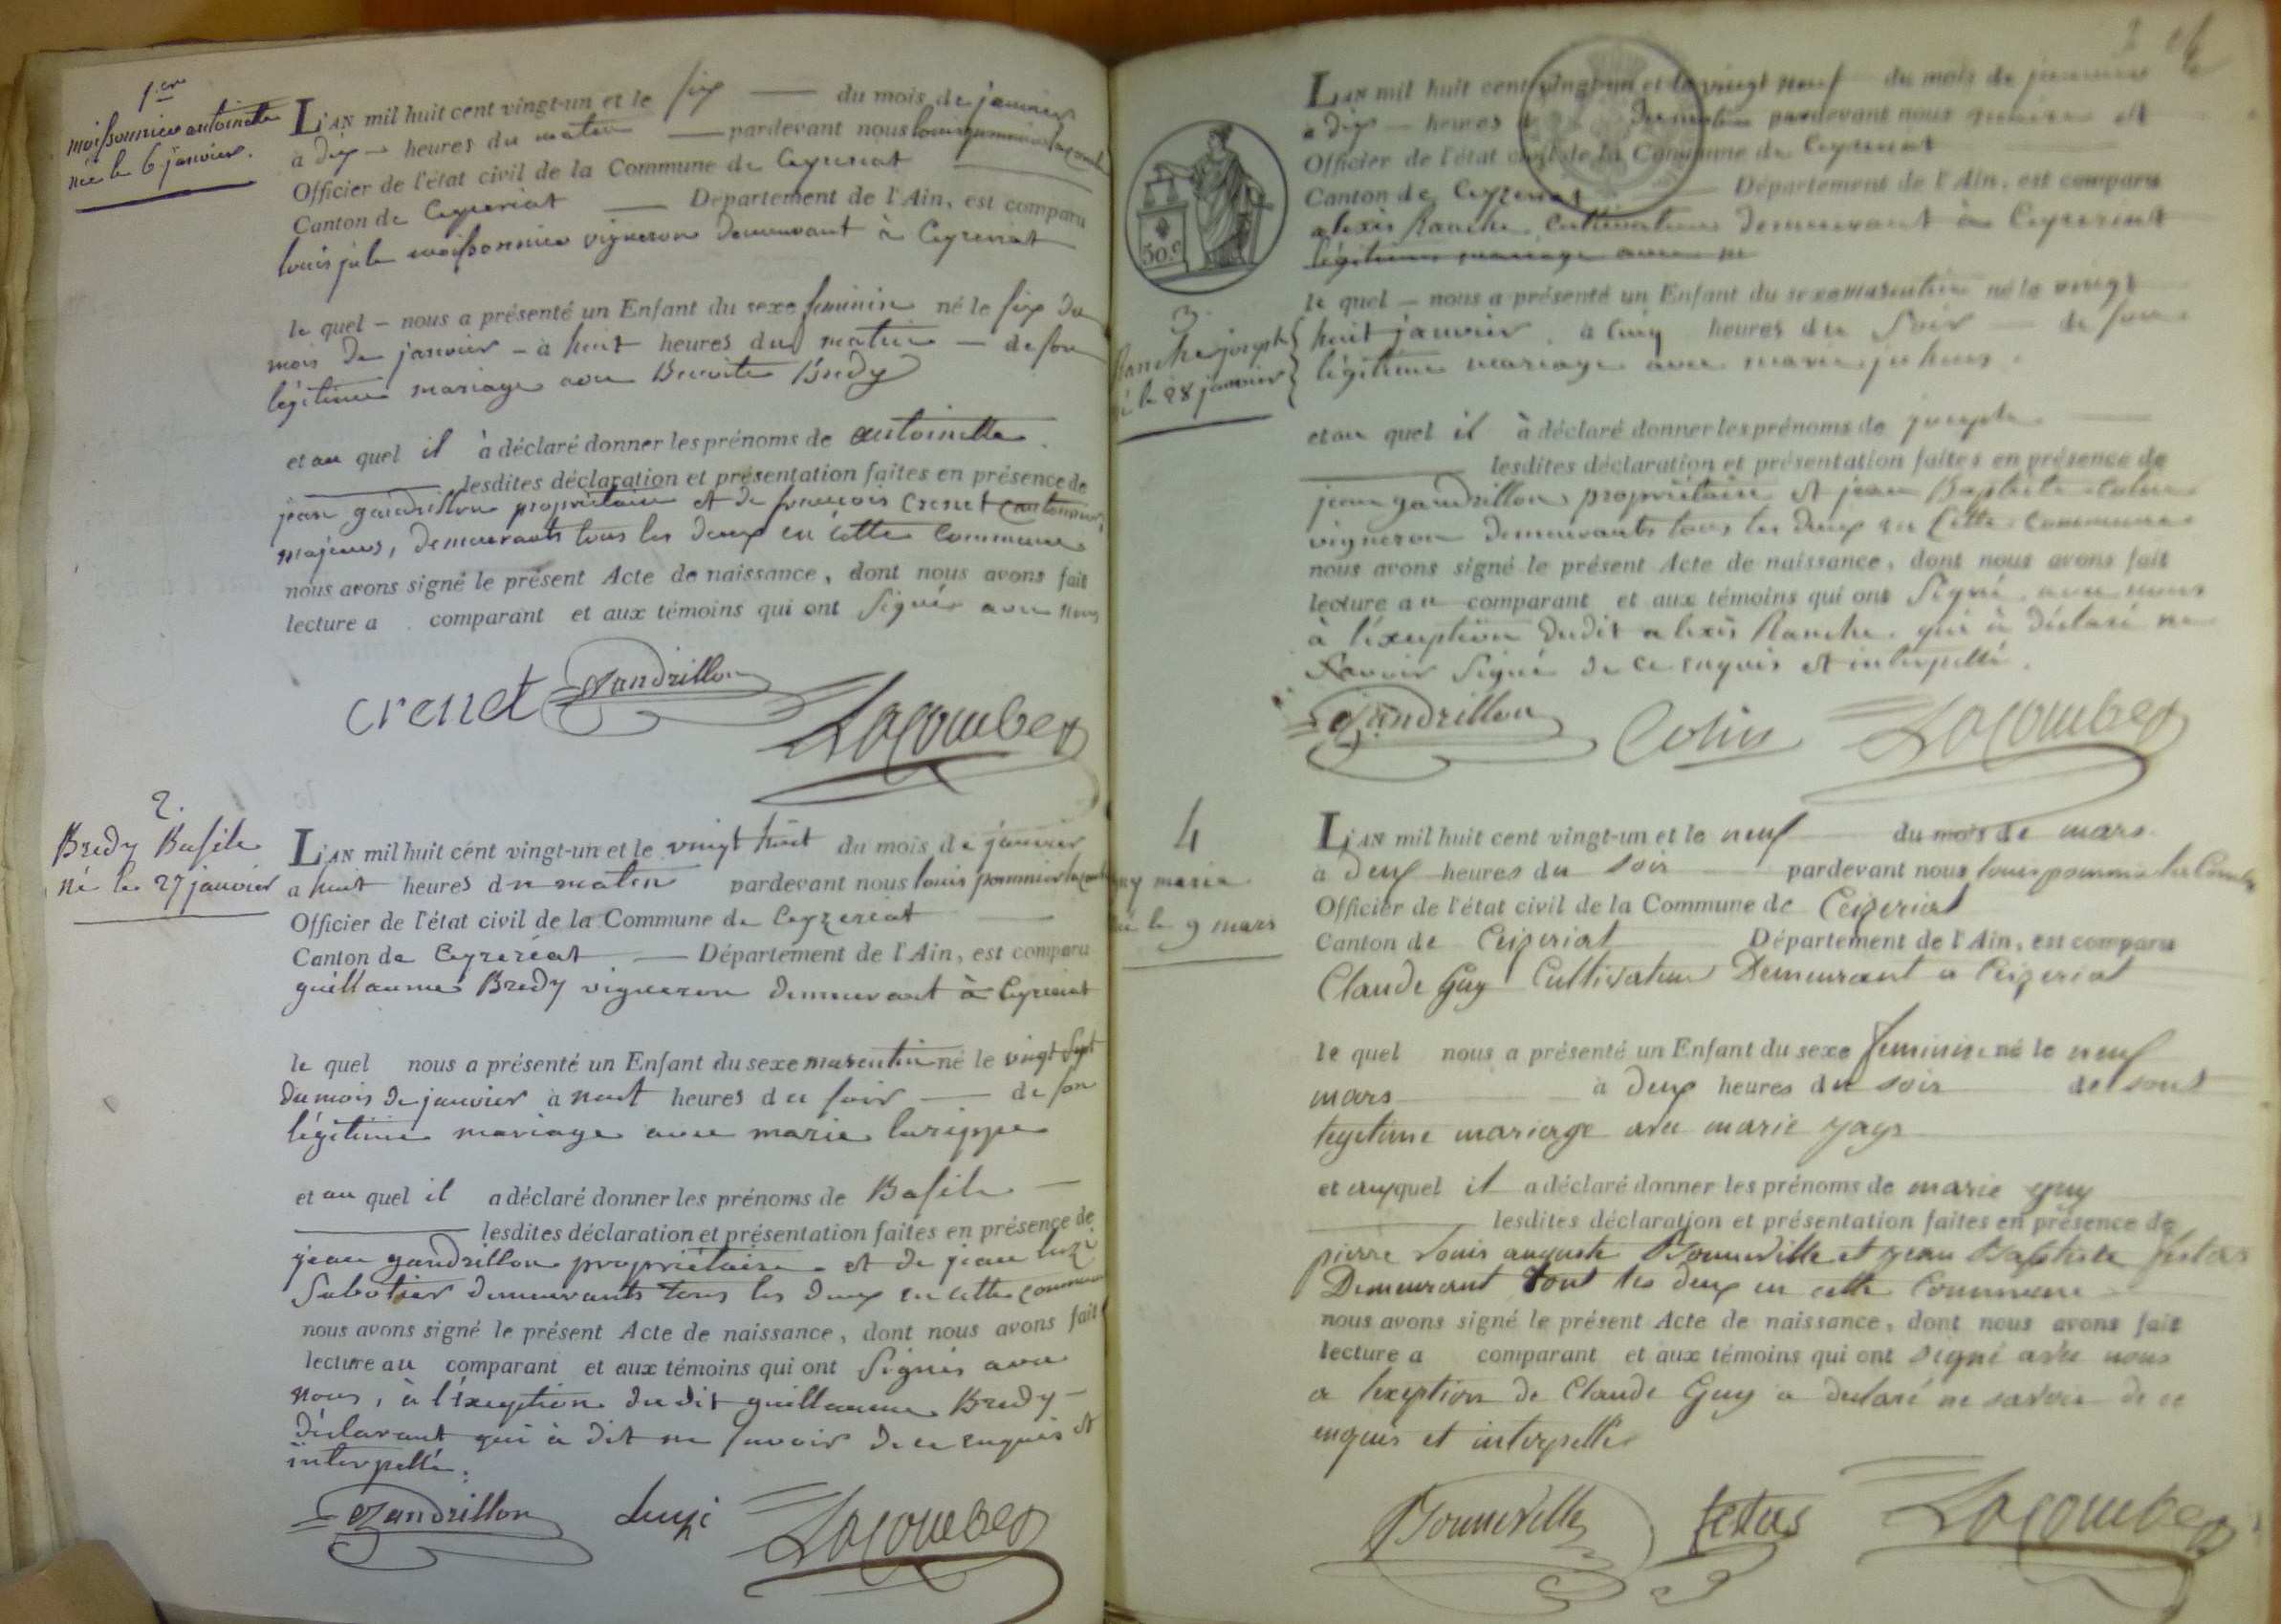 1.er
moissonnier antoinette
née le 6 janvier.
L'AN mil huit cent vingt-un et le six du mois de janvier
à dix heures du matin pardevant nous louis pommier lacombe
Officier de l'état civil de la Commune de Ceyzeriat
Canton de Ceyzeriat Département de l'Ain, est comparu
louis jule moissonnier vigneron demeurant à Ceyzeriat
le quel nous a présenté un Enfant du sexe feminin né le six du
mois de janvier à huit heures du matin de son
légitime mariage avec Benoite Bredy
et au quel il à déclaré donner les prénoms de antoinette
lesdites déclaration et présentation faites en présence de
jean gandrillon propriétaire et de françois crenet cantonnier,
majeurs, demeurants tous les deux en cette commune
nous avons signé le présent Acte de naissance, dont nous avons fait
lecture a comparant et aux témoins qui ont signés avec nous
crenet Gandrillon Lacombe
2.
Bredy Basile
né le 27 janvier
L'AN mil huit cent vingt-un et le vingt huit du mois de janvier
a huit heures du matin pardevant nous louis pommier lacombe
Officier de l'état civil de la Commune de Ceyzeriat
Canton de Ceyzeriat Département de l'Ain, est comparu
guillaume Bredy vigneron demeurant à Ceyzeriat
le quel nous a présenté un Enfant du sexe masculin né le vingt sept
du mois de janvier à huit heures du soir de son
légitime mariage avec marie larippe
et au quel il a déclaré donner les prénoms de Basile
lesdites déclaration et présentation faites en présence de
jean gandrillon propriétaire et de jean luzi
Sabotier demeurants tous les deux en cette commune
nous avons signé le présent Acte de naissance, dont nous avons fait
lecture au comparant et aux témoins qui ont signés avec
nous, à l'éxeption du dit guillaume Bredy
déclarant qui à dit ne savoir de ce enquis et
interpellé.
Gandrillon Luzi Lacombe
L'AN mil huit cent vingt-un et le vingt neuf du mois de janvier
a dix heures du matin pardevant nous
Officier de l'état civil de la Commune de Ceyzeriat
Canton de Ceyzeriat Département de l'Ain, est comparu
alexis Ranche Cultivateur demeurant à Ceyzeriat
légitime mariage avec m
30.c
3.
Ranche joseph
né le 28 janvier
le quel nous a présenté un Enfant du sexe masculin né le vingt
huit janvier à cinq heures du soir de son
légitime mariage avec marie
et au quel il à déclaré donner les prénoms de joseph
lesdites déclaration et présentation faites en présence de
jean gandrillon propriétaire et jean Baptiste colin
vigneron demeurants tous les deux en cette commune
nous avons signé le présent Acte de naissance, dont nous avons fait
lecture au comparant et aux témoins qui ont signé avec nous
à l'éxeption dudit alexis Ranche qui à déclaré ne
savoir signé de ce enquis et interpellé.
Gandrillon Colin Lacombe
4
guy marie
né le 9 mars
L'AN mil huit cent vingt-un et le neuf du mois de mars
à deux heures du soir pardevant nous louis pommier lacombe
Officier de l'état civil de la Commune de Ceizeriat
Canton de Ceizeriat Département de l'Ain, est comparu
Claude Guy Cultivateur Demeurant a Ceizeriat
le quel nous a présenté un Enfant du sexe feminin né le neuf
mars à deux heures du soir de sont
legetime mariage avec marie
et auquel il a déclaré donner les prénoms de marie guy
lesdites déclaration et présentation faites en présence de
pierre louis auguste Bonneville et jean Baptiste fetas
Demeurant tout les deux en cette Commune
nous avons signé le présent Acte de naissance, dont nous avons fait
lecture a comparant et aux témoins qui ont signé avec nous
a lexeption de Claude Guy a declaré ne savoir de ce
enquis et interpellé
Bonneville fetas Lacombe